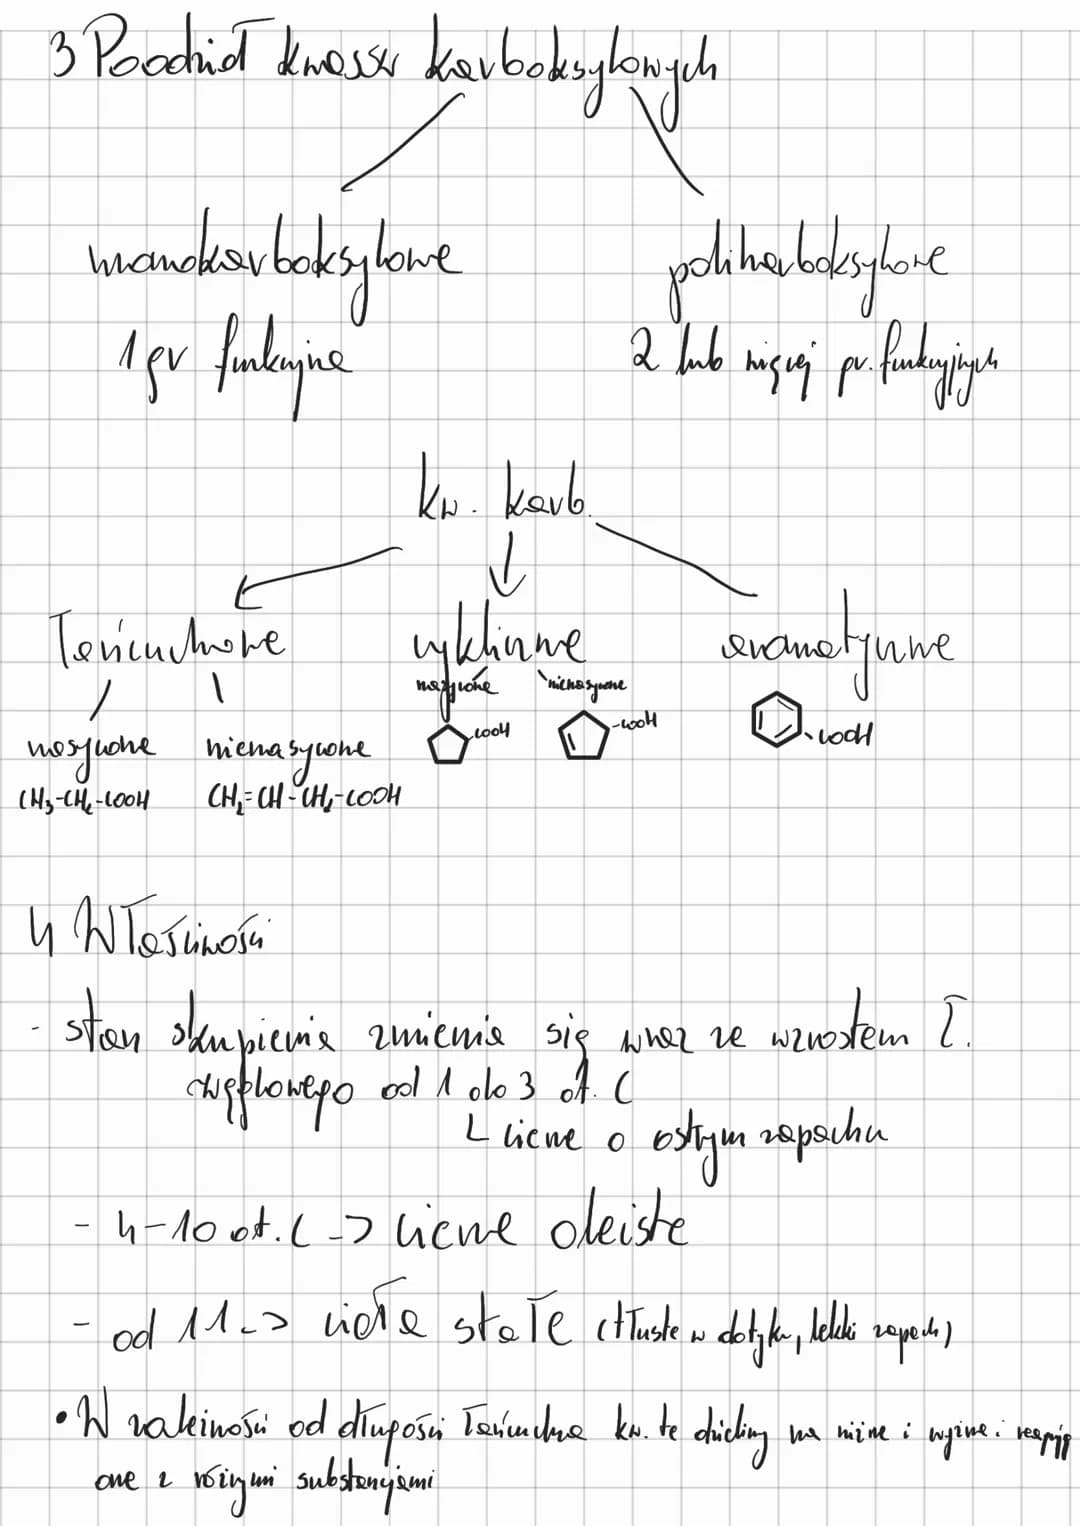 3 Poodział kwasów karboksylowych
monokarboksylowe polikarboksylowe
1 gr funkcyjna 2 lub więcej gr. funkcyjnych
kw. karb.
Łańcuchowe cykliczne aromatyczne
nasycone nienasycone
nasycone nienasycone
-COOH -COOH -COOH
CH₃-CH₂-COOH CH₂=CH-CH₂-COOH
4 Właściwości
- stan skupienia zmienia się wraz ze wzrostem ł.
węglowego od 1 do 3 at. C
L ciecze o ostrym zapachu
- 4-10 at. C -> ciecze oleiste
- od 11 -> ciała stałe (tłuste w dotyku, lekki zapach)
• W zależności od długości łańcucha kw. te dzielimy na niższe i wyższe i reagują
one z różnymi substancjami